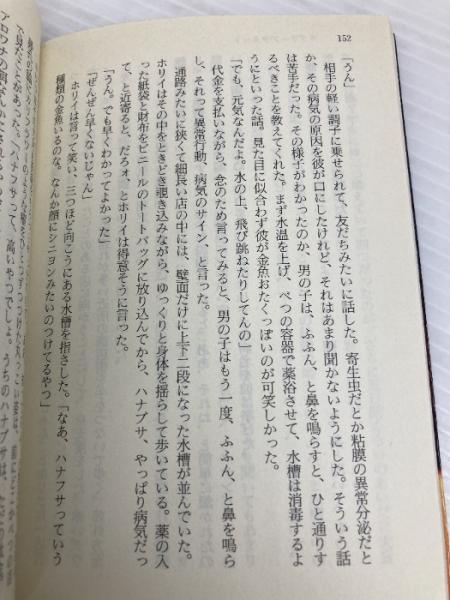 152
「うん」
相手の軽い調子に乗せられて、友だちみたいに話した。寄生虫だとか粘膜の異常分泌だと
か、その病気の原因を彼が口にしたけれど、それはあまり聞かないようにした。そういう話
は苦手だった。その様子がわかったのか、男の子は、ふふん、と鼻を鳴らすと、ひと通りす
るべきことを教えてくれた。まず水温を上げ、べつの容器で薬浴させて、水槽は消毒するよ
うにといった話。見た目に似合わず彼が金魚おたくっぽいのが可笑しかった。
「でも、元気なんだよ。水の上、飛び跳ねたりしてんの」
代金を支払いながら、念のため言ってみると、男の子はもう一度、ふふん、と鼻を鳴ら
し、それって異常行動、病気のサイン、と言った。
通路みたいに狭くて細長い店の中には、壁面だけに上下二段になった水槽が並んでいた。
ホリイはその中をときどき覗き込みながら、ゆっくりと身体を揺らして歩いている。薬の入
った紙袋と財布をビニールのトートバッグに放り込んでから、ハナブサ、やっぱり病気だっ
て、と近寄ると、だろォ、とホリイは得意そうに言った。
「うん。でも早くわかってよかった」
「ぜんぜん早くないじゃん」
ホリイは言って笑い、三つほど向こうにある水槽を指さした。「なあ、ハナフサっていう
種類の金魚いるのな。なんか顔にシニヨンみたいのつけてるやつ」